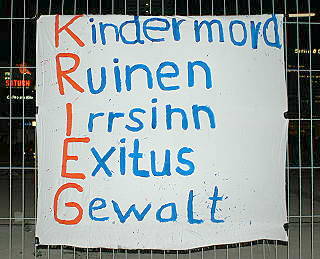 Kindermord
Ruinen
Irrsinn
Exitus
Gewalt
SATURN